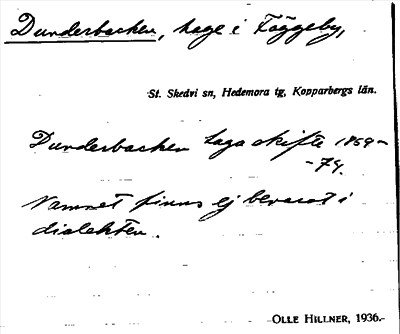 Dunderbacken, hage i Fäggeby,
St. Skedvi sn, Hedemora tg, Kopparbergs län.
Dunderbacken Laga skifte 1859-
-74.
Namnet finns ej bevarat i
dialekten.
OLLE HILLNER, 1936.-